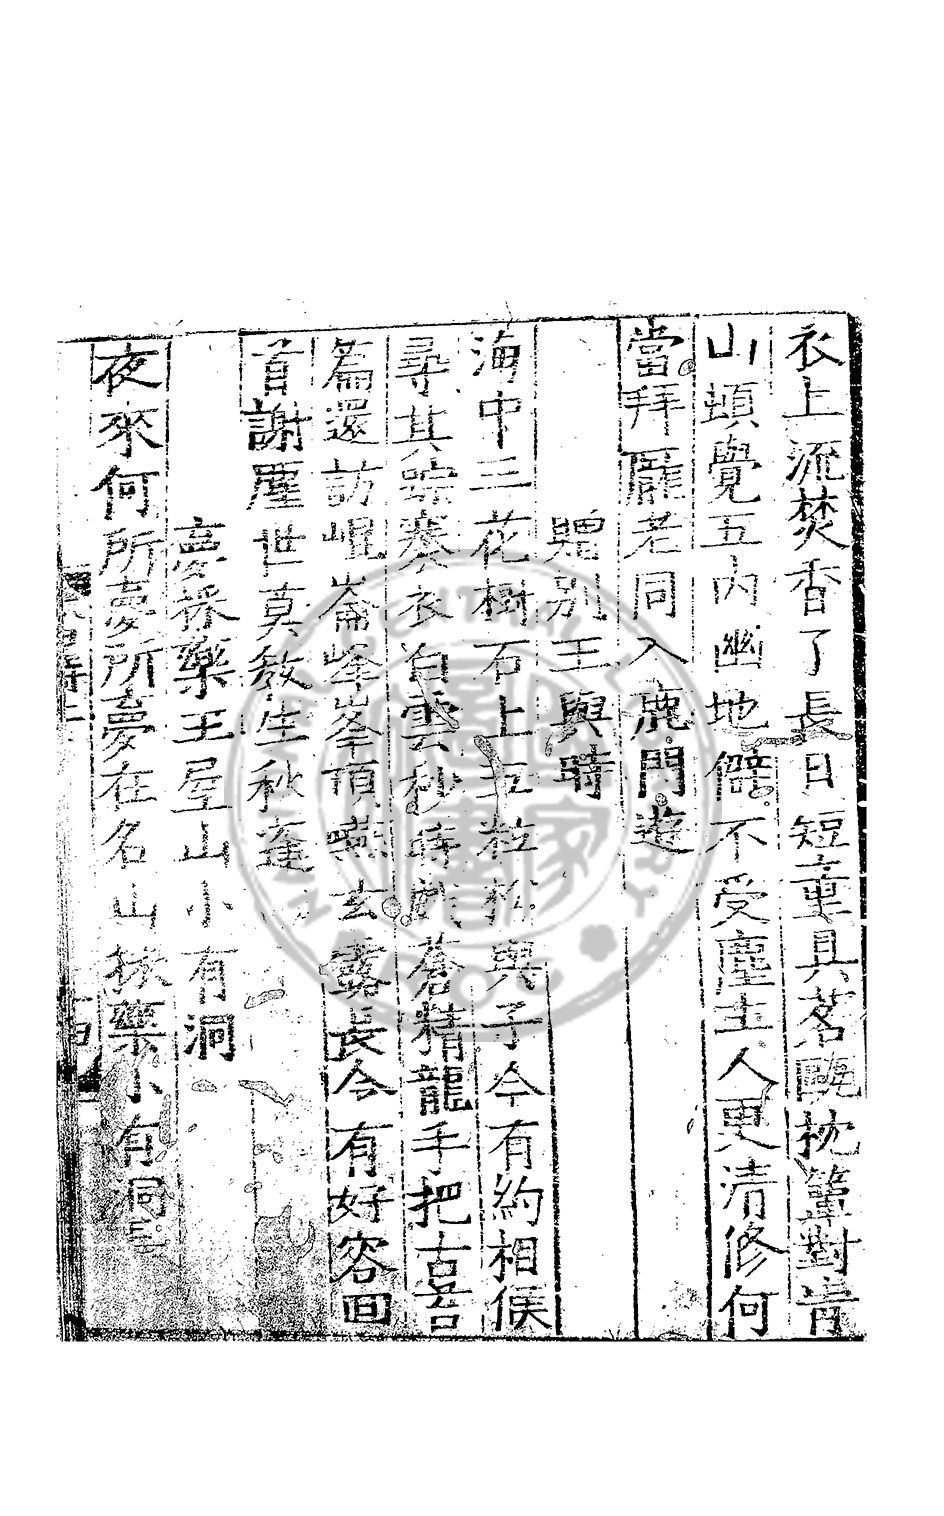 衣上流焚香了長日短童具茗甌枕簟對肯
山頓覺五内幽地僻不受塵主人更清修何
當拜龐老同入鹿門遊
贈別王與時
海中三花樹石上五粒松與子今有約相候
尋其蹤褰衣白雲杪蒼精龍手把古吾
篇還訪崐崙峰峯頂燕玄露長令有好容回
首謝塵世莫教生秋蓬
夢採藥王屋山小有洞
夜來何所夢所夢在名山採藥小有洞